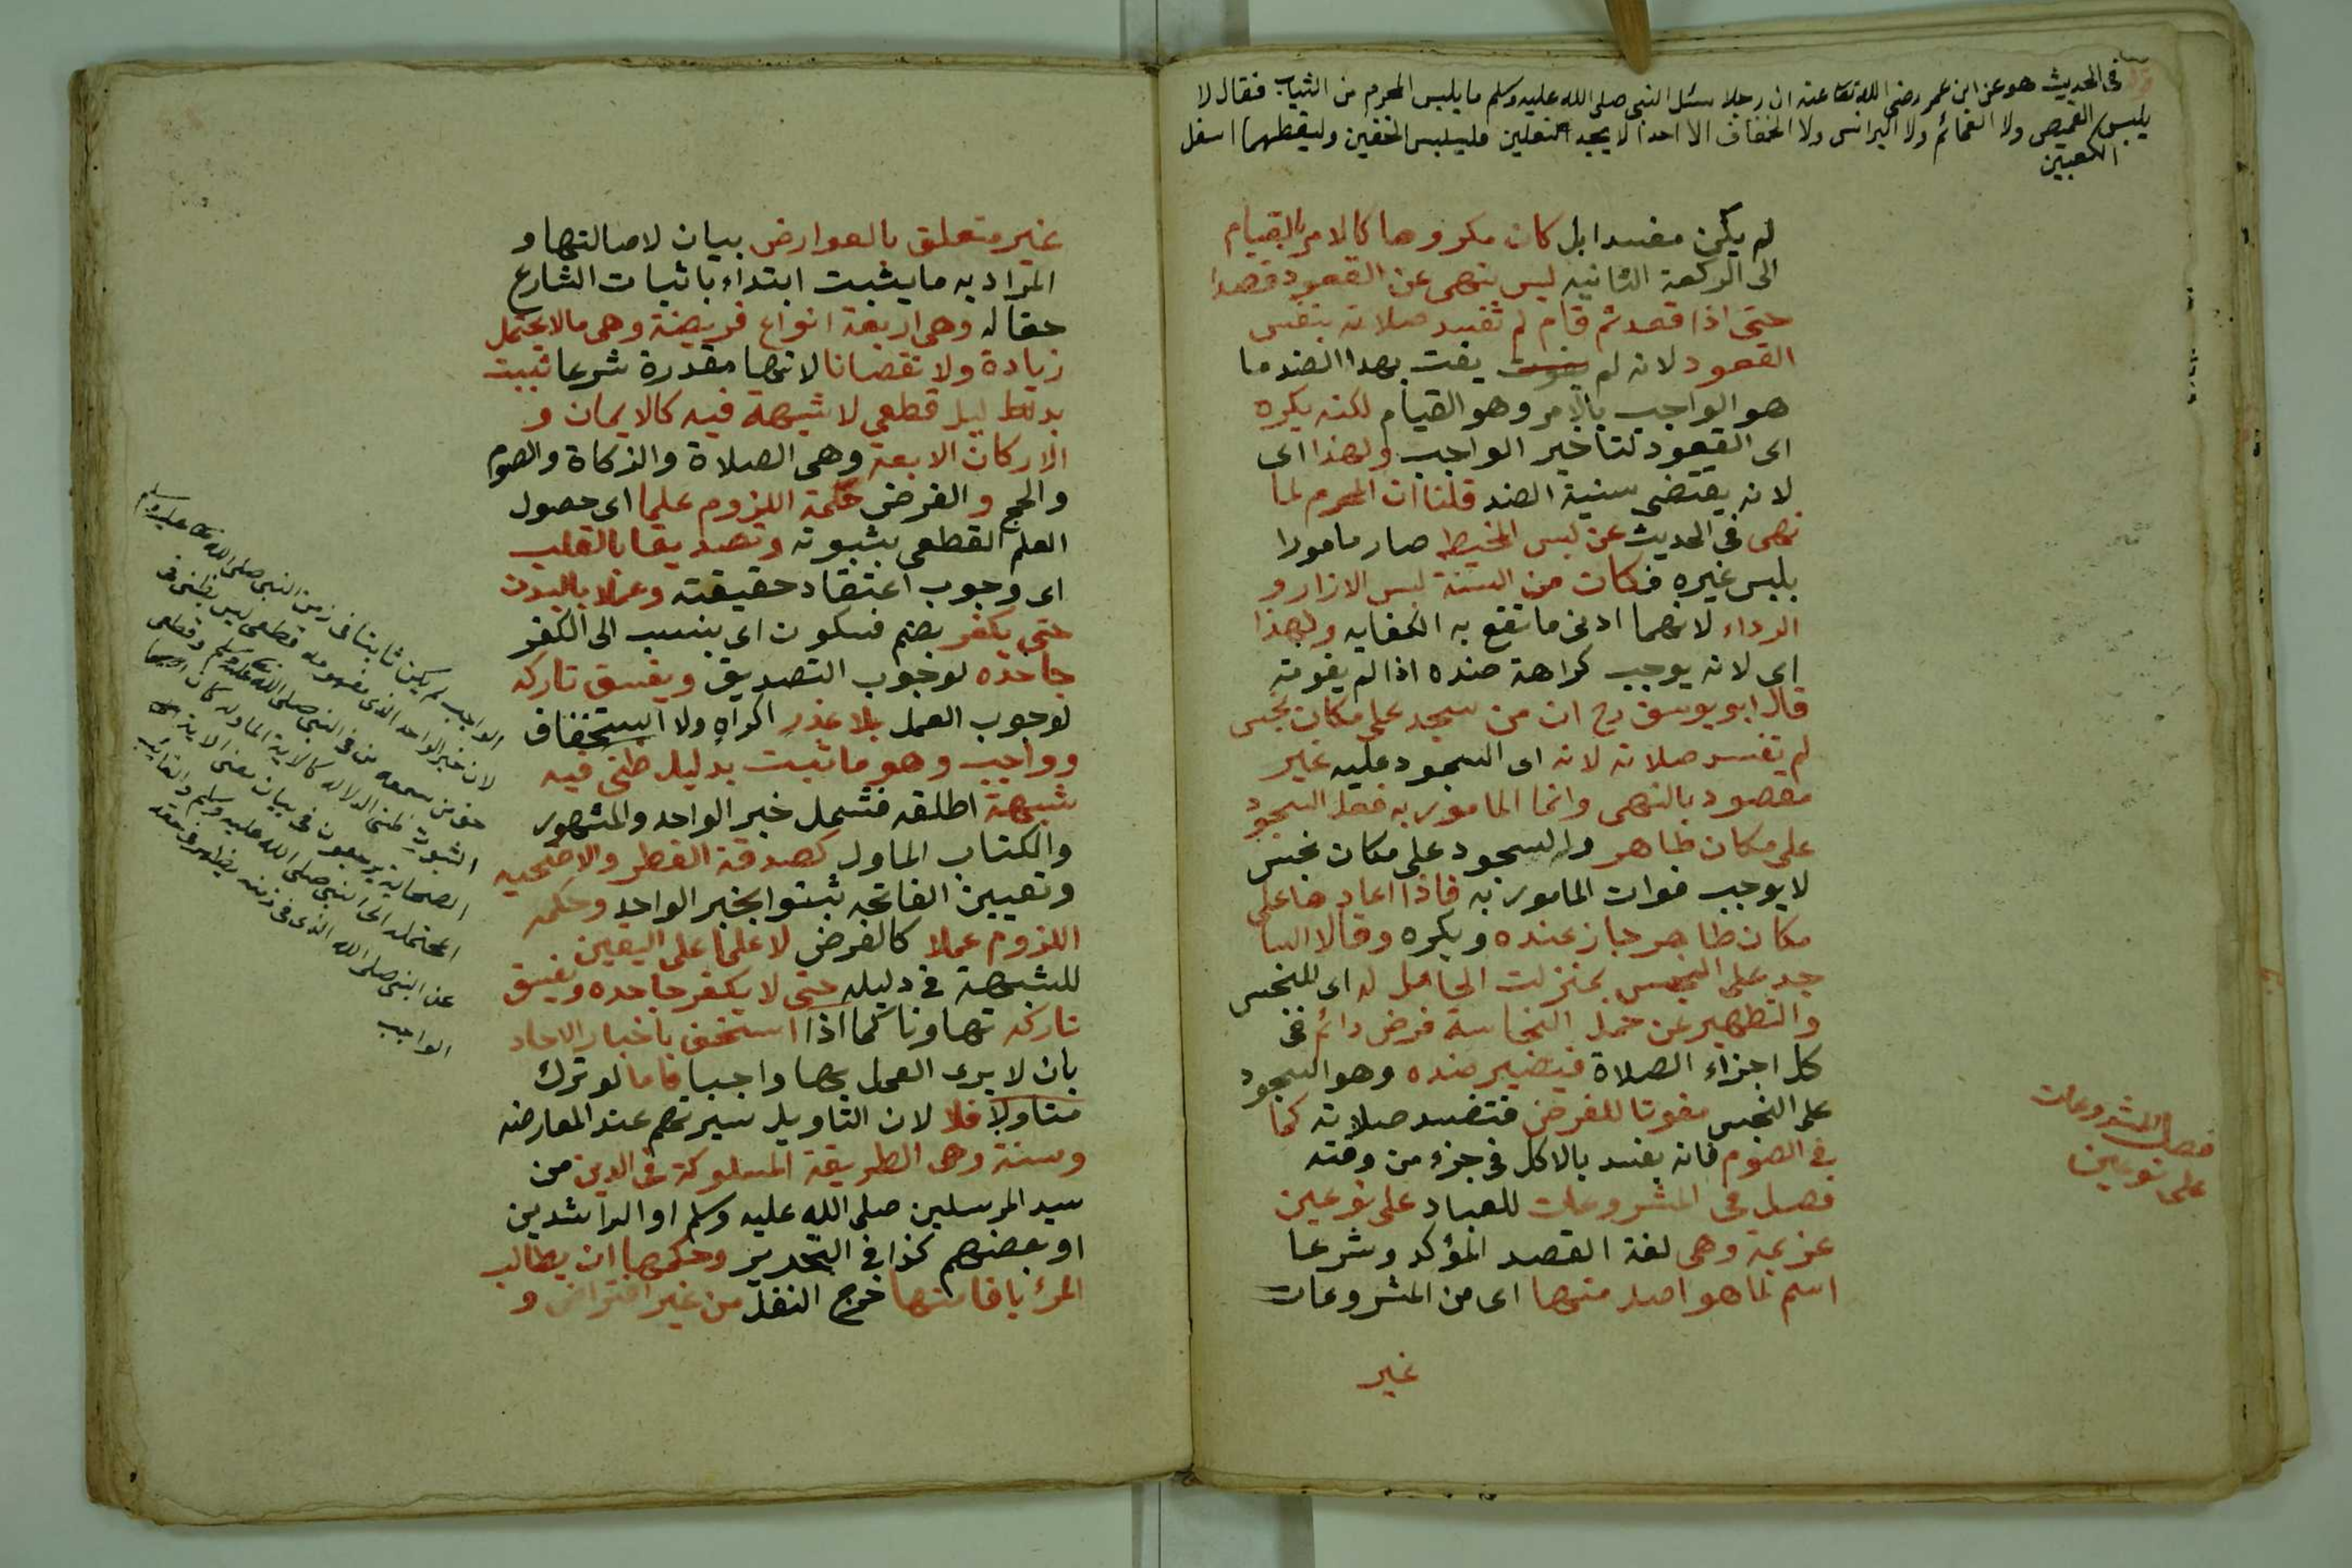 في الحديث هو عن ابن عمر رضي الله تعا عنه ان رجلا سئل النبي صلى الله عليه وسلم ما يلبس المحرم من الثياب فقال لا
يلبس القميص ولا العمائم ولا البرانس ولا الخفاف الا احدا لا يجد النعلين فليلبس الخفين وليقطهما اسفل
الكعبين
لم يكن مفسدا بل كان مكروها كالامر بالقيام
الى الركعة الثانيه ليس بنهى عن القعود قصدا
حتى اذا قعد ثم قام لم تفسد صلاته بنفس
القعود لانه لم يفت بهدا الضد ما
هو الواجب بالامر وهو القيام لكنه يكره
اى القعود لتاخير الواجب ولهذا اى
لانه يقتضى سنية الضد قلنا ان المحرم لما
نهى فى الحديث عن لبس المخيط صار مامورا
بلبس غيره فكان من السنة لبس الازار و
الرداء لانهما ادنى ما تقع به الكفايه ولهذا
اى لانه يوجب كراهة ضده اذا لم يفوته
قال ابو يوسف رح ان من سجد على مكان نجس
لم تفسد صلاته لانه اى السجود عليه غير
مقصود بالنهى وانما المامور به فعل السجود
على مكان طاهر والسجود على مكان نجس
لا يوجب فوات المامور به فاذا اعادها على
مكان طاهر جاز عنده ويكره وقالا السا
جد على النجس بمنزلت الحامل له اى للنجس
والتطهير عن حمل النجاسة فرض دائم فى
كل اجزاء الصلاة فيضير ضده وهو السجود
على النجس مفوتا للفرض فتفسد صلاته كما
فى الصوم فانه يفسد بالاكل فى جزء من وقته
فصل فى المشروعات للعباد على نوعين
عزيمة وهى لغة القصد المؤكد وشرعا
اسم لما هو اصل منها اى من المشروعات
غير
فصل المشروعات
على نوعين
غير متعلق بالعوارض بيان لاصالتها و
المراد به ما يثبت ابتداء باثبات الشارع
حقا له وهى اربعة انواع فريضة وهى ما لا يحتمل
زيادة ولا نقصانا لانها مقدرة شرعا ثبيت
بدليل قطعى لا شبهة فيه كالايمان و
الاركان الابعة وهى الصلاة والزكاة والصوم
والحج والفرض حكمة اللزوم علما اى حصول
العلم القطعى بثبوته وتصديقا بالقلب
اى وجوب اعتقاد حقيقته وعملا بالبدن
حتى يكفر بضم فسكون اى ينسب الى الكفر
جاحده لوجوب التصديق ويفسق تاركه
لوجوب العمل بلا عذر اكراه ولا استخفاف
وواجب وهو ما ثبت بدليل ظنى فيه
شبهة اطلقه فشمل خبر الواحد والمشهور
والكتاب الماول كصدقة الفطر والاضحيه
وتعيين الفاتحه ثبتوا بخبر الواحد وحكمه
اللزوم عملا كالفرض لا علما على اليقين
للشبهة فى دليله حتى لا يكفر جاحده ويفسق
تاركه تهاونا كما اذا استخف باخبار الاحاد
بان لا يرى العمل بها واجبا فاما لو ترك
متاولا فلا لان التاويل سيرتهم عند المعارضه
وسنة وهى الطريقة المسلوكة فى الدين من
سيد المرسلين صلى الله عليه وسلم او الراشدين
او بعضهم كذا فى التحرير وحكمها ان يطالب
المرء باقامتها خرج النفل من غير افتراض و
الواجب لم يكن ثابتا فى زمن النبي صلى الله تعا عليه وسلم
لان خبر الواحد الذى مفهومه قطعى ليس بظنى فى
حق من سمعه من فى النبي صلى الله عليه وسلم وقطعى
الثبوت ظنى الدلاله كالاية الماوله كان
الصحابة يرجعون فى بيان معنى الاية
المحتمله الى النبي صلى الله عليه وسلم والغايب
عن النبي صلى الله الذى فى زمنه يظهر فى حقه
الواجب